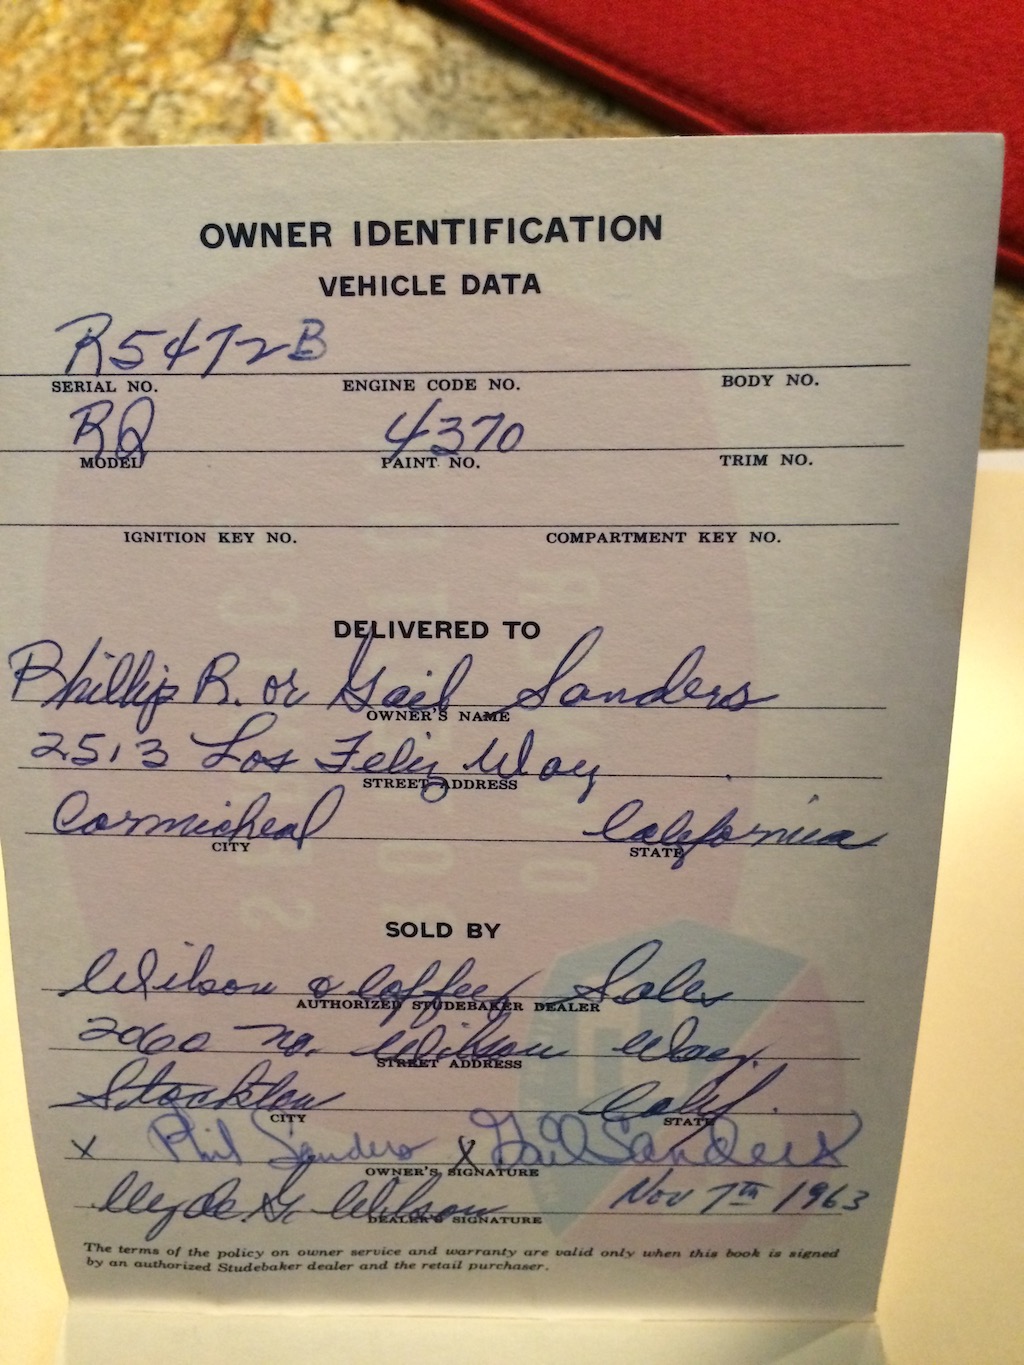 OWNER IDENTIFICATION
VEHICLE DATA
R5472B
SERIAL NO. ENGINE CODE NO. BODY NO.
RQ 4370
MODEL PAINT NO. TRIM NO.
IGNITION KEY NO. COMPARTMENT KEY NO.
DELIVERED TO
Phillip R. or Gail Sanders
OWNER'S NAME
2513 Los Feliz Way
STREET ADDRESS
Carmicheal California
CITY STATE
SOLD BY
Wilson & Coffey Sales
AUTHORIZED STUDEBAKER DEALER
2060 no. Wilson Way.
STREET ADDRESS
Stockton Calif.
CITY STATE
X Phil Sanders X Gail Sanders
OWNER'S SIGNATURE
Clyde G. Wilson Nov 7th 1963
DEALER'S SIGNATURE
The terms of the policy on owner service and warranty are valid only when this book is signed
by an authorized Studebaker dealer and the retail purchaser.